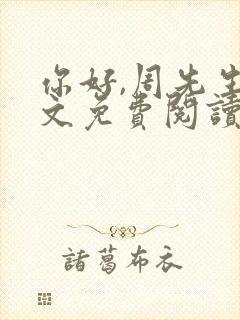 你好,周先生
文免费閱讀
諸葛布衣